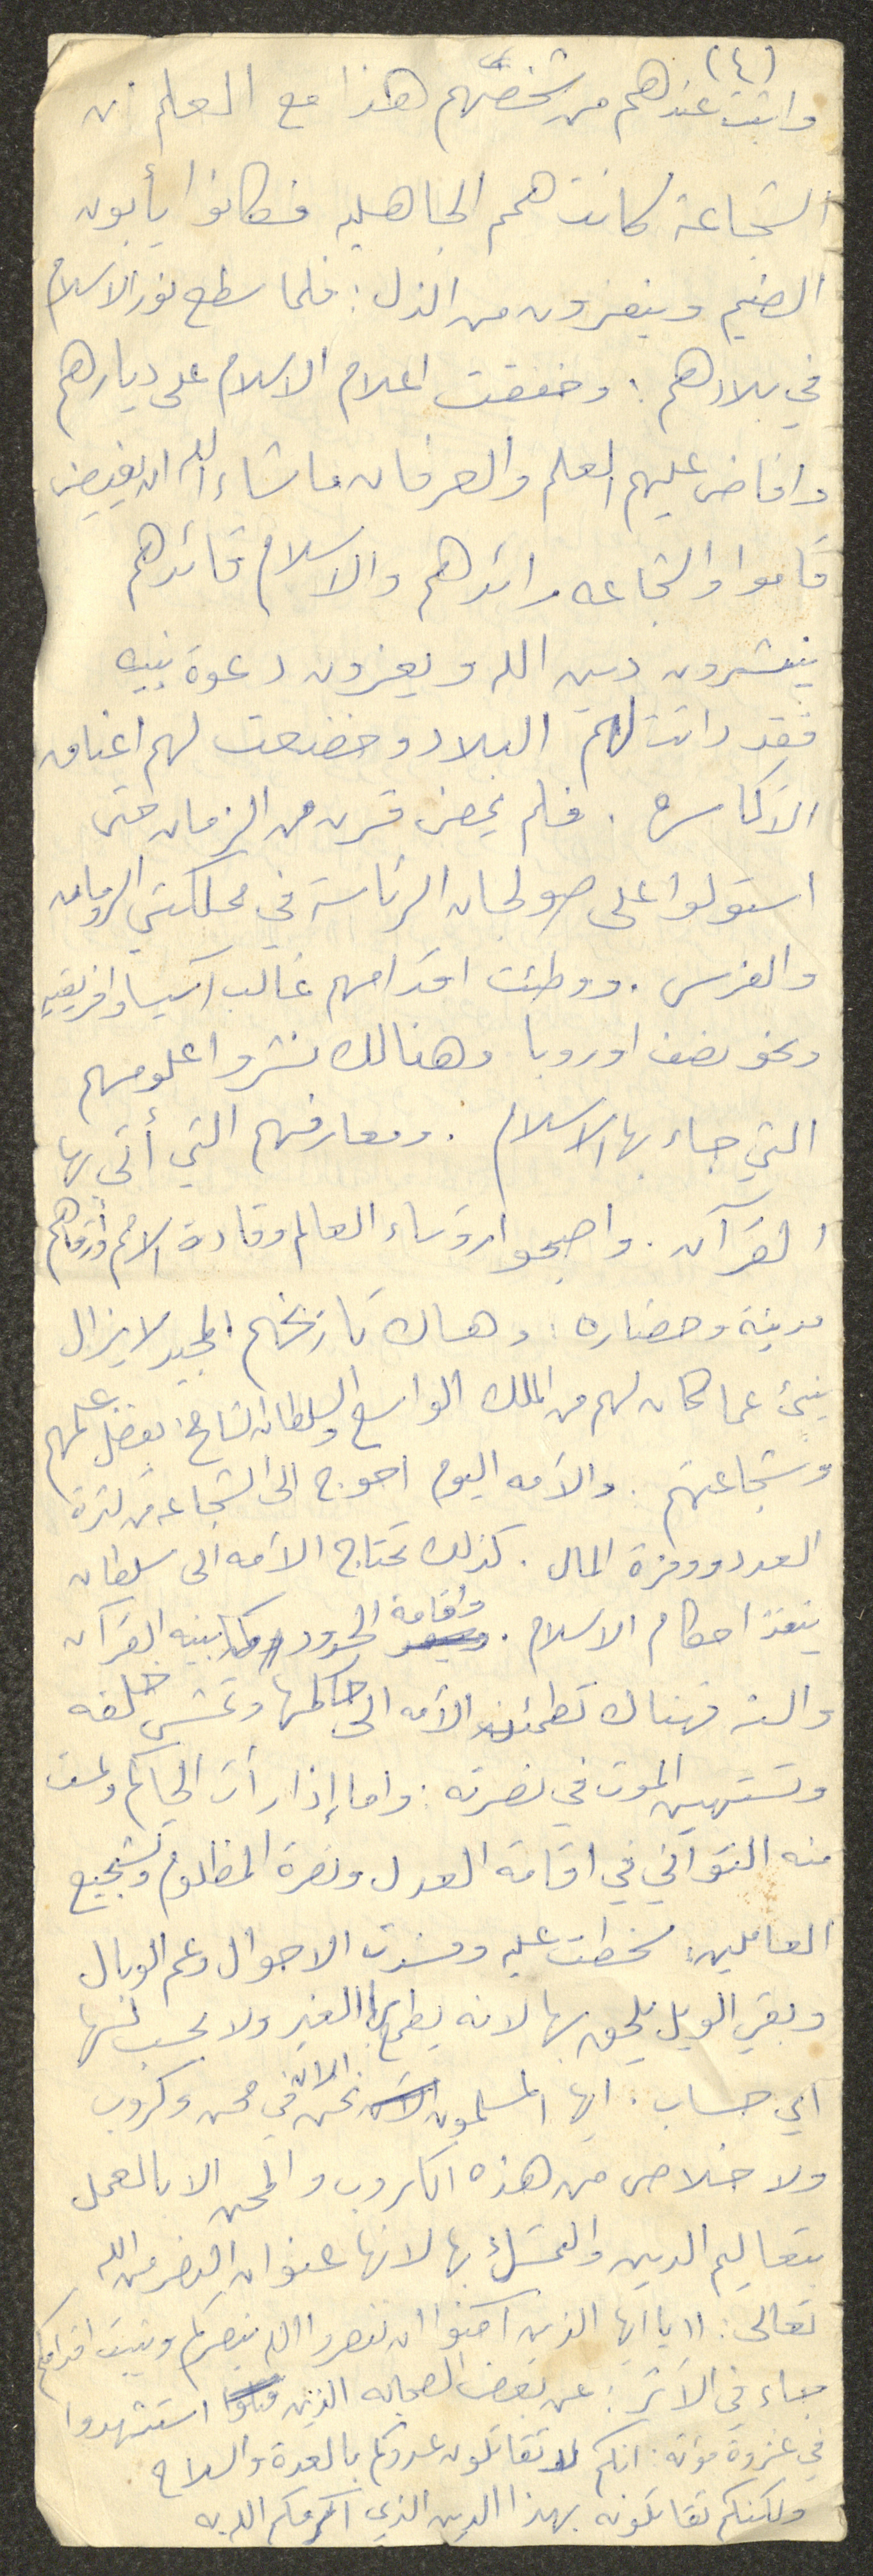 (٤)
واثبت عندهم من شخصهم هذا مع العلم ان
الشجاعة كانت هم الجاهليه فكانوا يأبون
الضيم وينفرون من الذل: فلما سطع نور الاسلام
في بلادهم: وخفقت اعلام الاسلام على ديارهم
وافاض عليهم العلم والعرفان ما شاء الله ان يفيض
قاموا والشجاعه رائدهم والاسلام قائدهم
ينشرون دين الله ويعزون دعوة نبيه
فقد دانت لهم البلاد وخضعت لهم اعناق
الاكاسره. فلم يمض قرن من الزمان حتى
استولوا على صولجان الرئاسة في مملكتي الرومان
والفرس. ووطئت اقدامهم غالب آسيا وافريقيه
ونحو نصف اوروبا وهنالك نشروا علومهم
التي جاء بها الاسلام. ومعارفهم التي أتى بها
القرآن. واصبحوا رؤساء العالم وقادة الامم وأرقاهم
مدنية وحضاره: وهاك تاريخهم المجيد لا يزال
ينبئ عما كان لهم من الملك الواسع والسلطان الشامخ بفضل علمهم
وشجاعتهم. والأمه اليوم احوج الى الشجاعه من كثرة
العدد ووفرة المال. كذلك تحتاج الأمه الى سلطان
ينفذ احكام الاسلام. واقامة الحدود كما بينه القرآن
والسنه فهناك تطمئن الأمه الى حاكمها وتمشي خلفه
وتستهين الموت في نصرته: واما إذا رأت الحاكم ولمست
منه التواني في اقامة العدل ونصرة المظلوم وتشجيع
العاملين: سخطت عليه وفسدت الاحوال وعم الوبال
وبقي الويل يلحق بها لانه يطمع بها الغير ولا يحسب لها
اي حساب. ايها المسلمون نحن الان في محن وكروب
ولا خلاص من هذه الكروب والمحن الا بالعمل
بتعاليم الدين والتمسك بها لانها عنوان النصر من الله
تعالى: "يا ايها الذين آمنوا ان تنصروا الله ينصركم ويثبت اقدامكم
جاء في الأثر: عن بعض الصحابه الذين استشهدوا
في غزوة مؤته: انكم لا تقاتلون عدوكم بالعدة والسلاح
ولكنكم تقاتلونه بهذا الدين الذي اكرمكم الله به